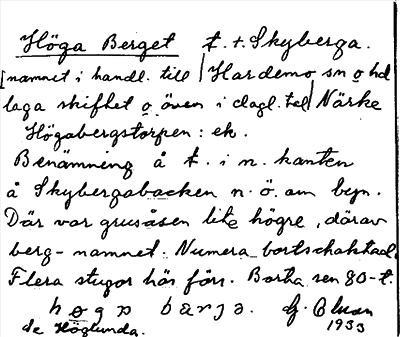 Höga Berget t. t. Skyberga.
[namnet i handl. till | Hardemo sn o hd
laga skifhet o även i dagl. tal | Närke
Högabergstorpen : ek.
Benämning å t. i n. kanten
å Skybergabacken n. ö. om byn.
Där var grusåsen lite högre, därav
berg-namnet. Numera bortschaktad.
Flera stugor här förr. Borta sen 80-t.
høga bærjə. G.
de Höglunda. 1933